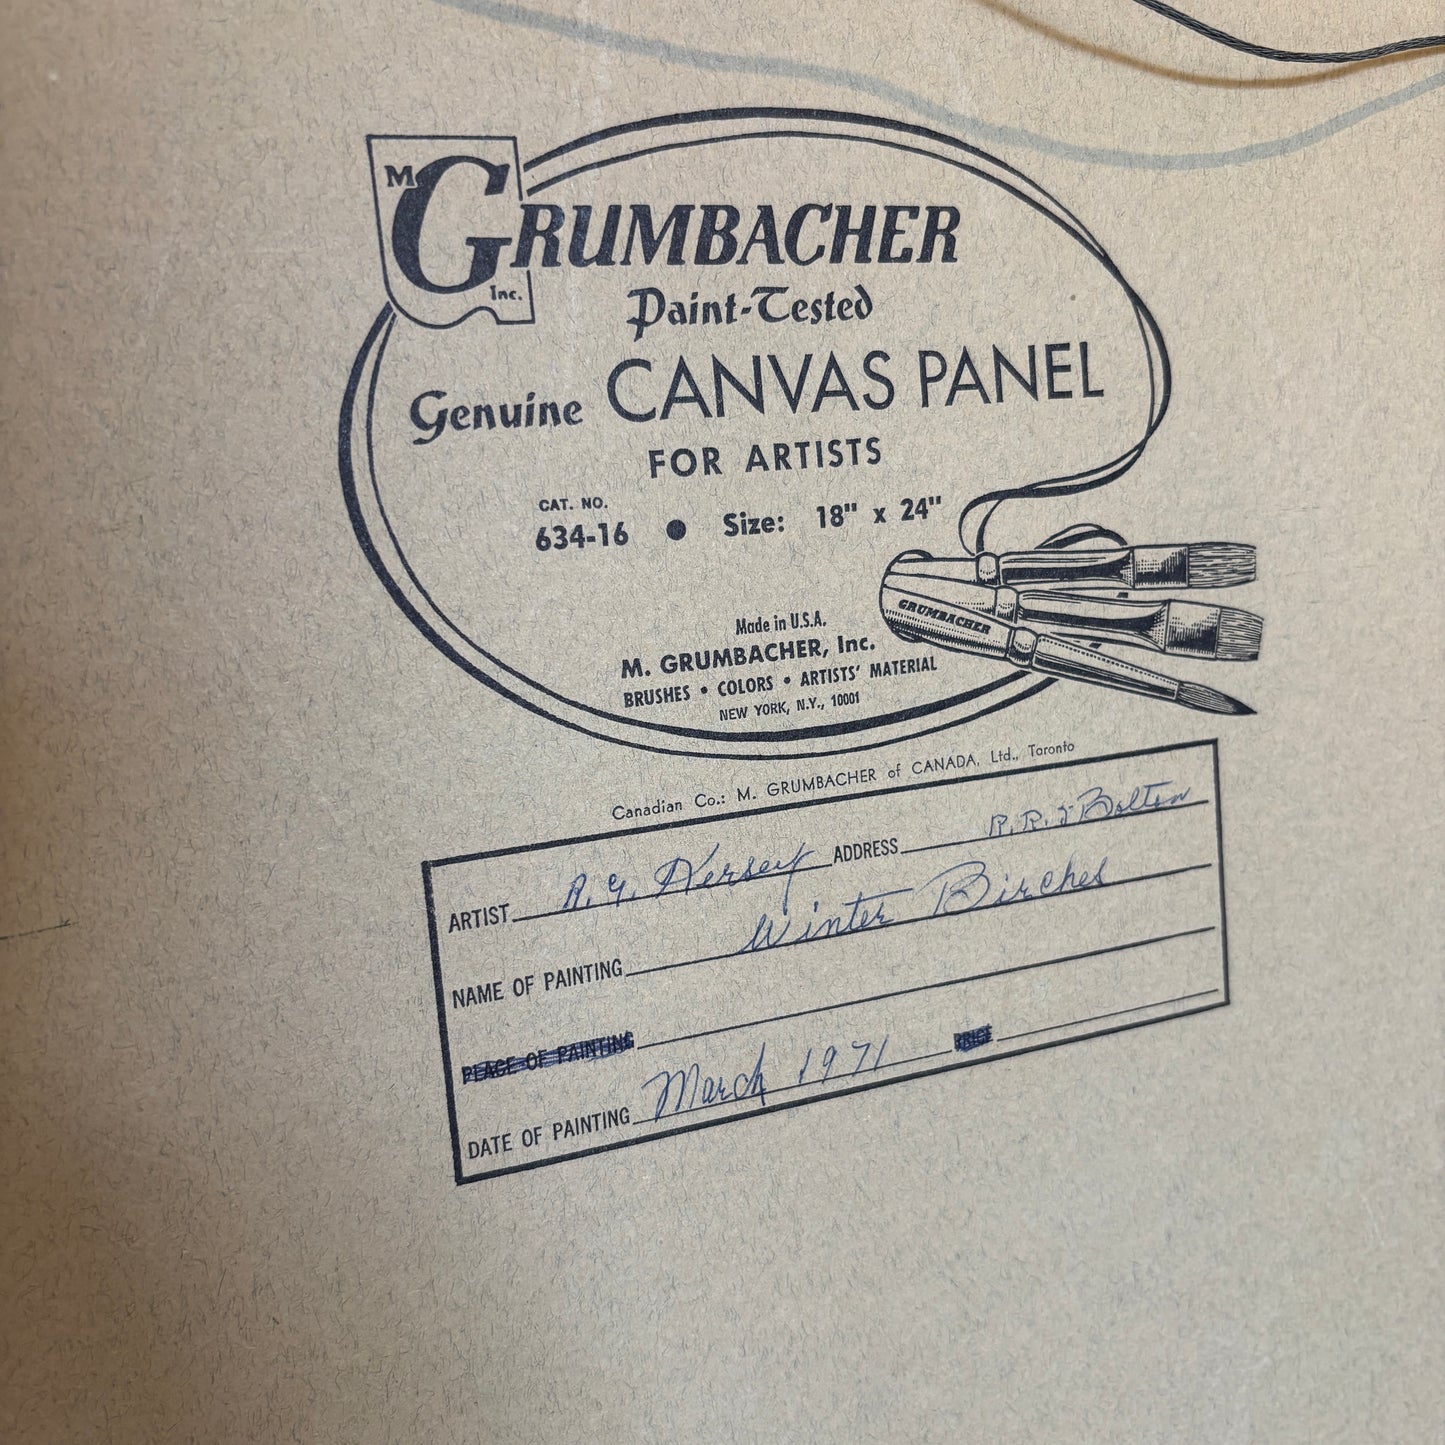 M GRUMBACHER
Inc.
Paint-Tested
Genuine CANVAS PANEL
FOR ARTISTS
CAT. NO.
634-16 • Size: 18" x 24"
GRUMBACHER
Made in U.S.A.
M. GRUMBACHER, Inc.
BRUSHES • COLORS • ARTISTS' MATERIAL
NEW YORK, N.Y., 10001
Canadian Co.: M. GRUMBACHER of CANADA, Ltd., Toronto
ARTIST A. G. Kersey ADDRESS R.R. Bolton
NAME OF PAINTING Winter Birches
PLACE OF PAINTING
DATE OF PAINTING March 1971 PRICE